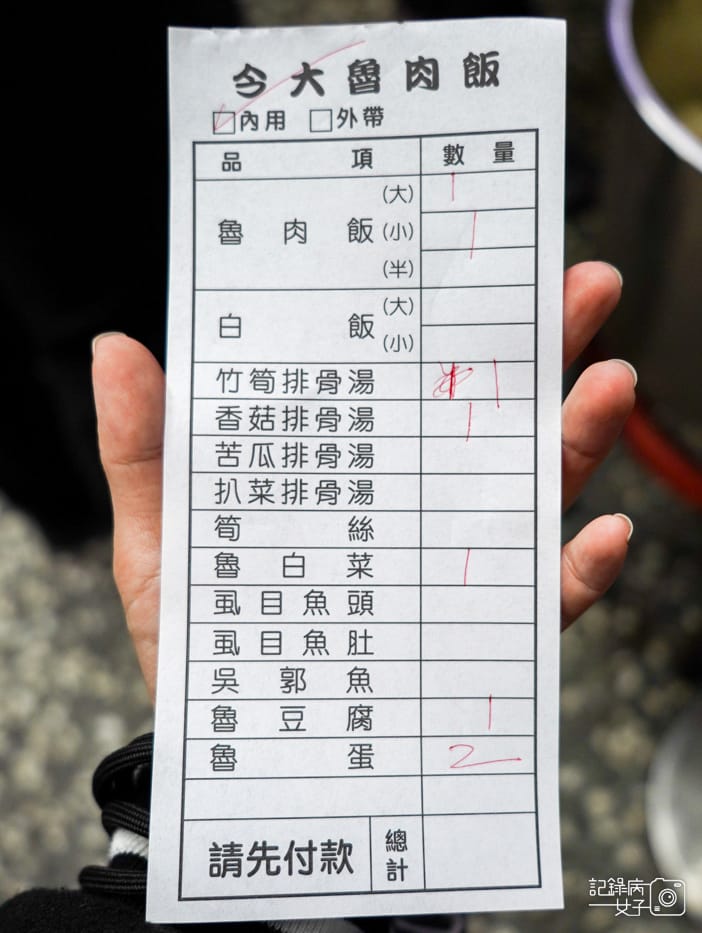 今大魯肉飯
□內用 □外帶
品項 數量
(大) 1
魯肉飯 (小) 1
(半)
(大)
白飯
(小)
竹筍排骨湯 1
香菇排骨湯 1
苦瓜排骨湯
扒菜排骨湯
筍絲
魯白菜 1
虱目魚頭
虱目魚肚
吳郭魚
魯豆腐 1
魯蛋 2
請先付款 總計
記錄病
女子